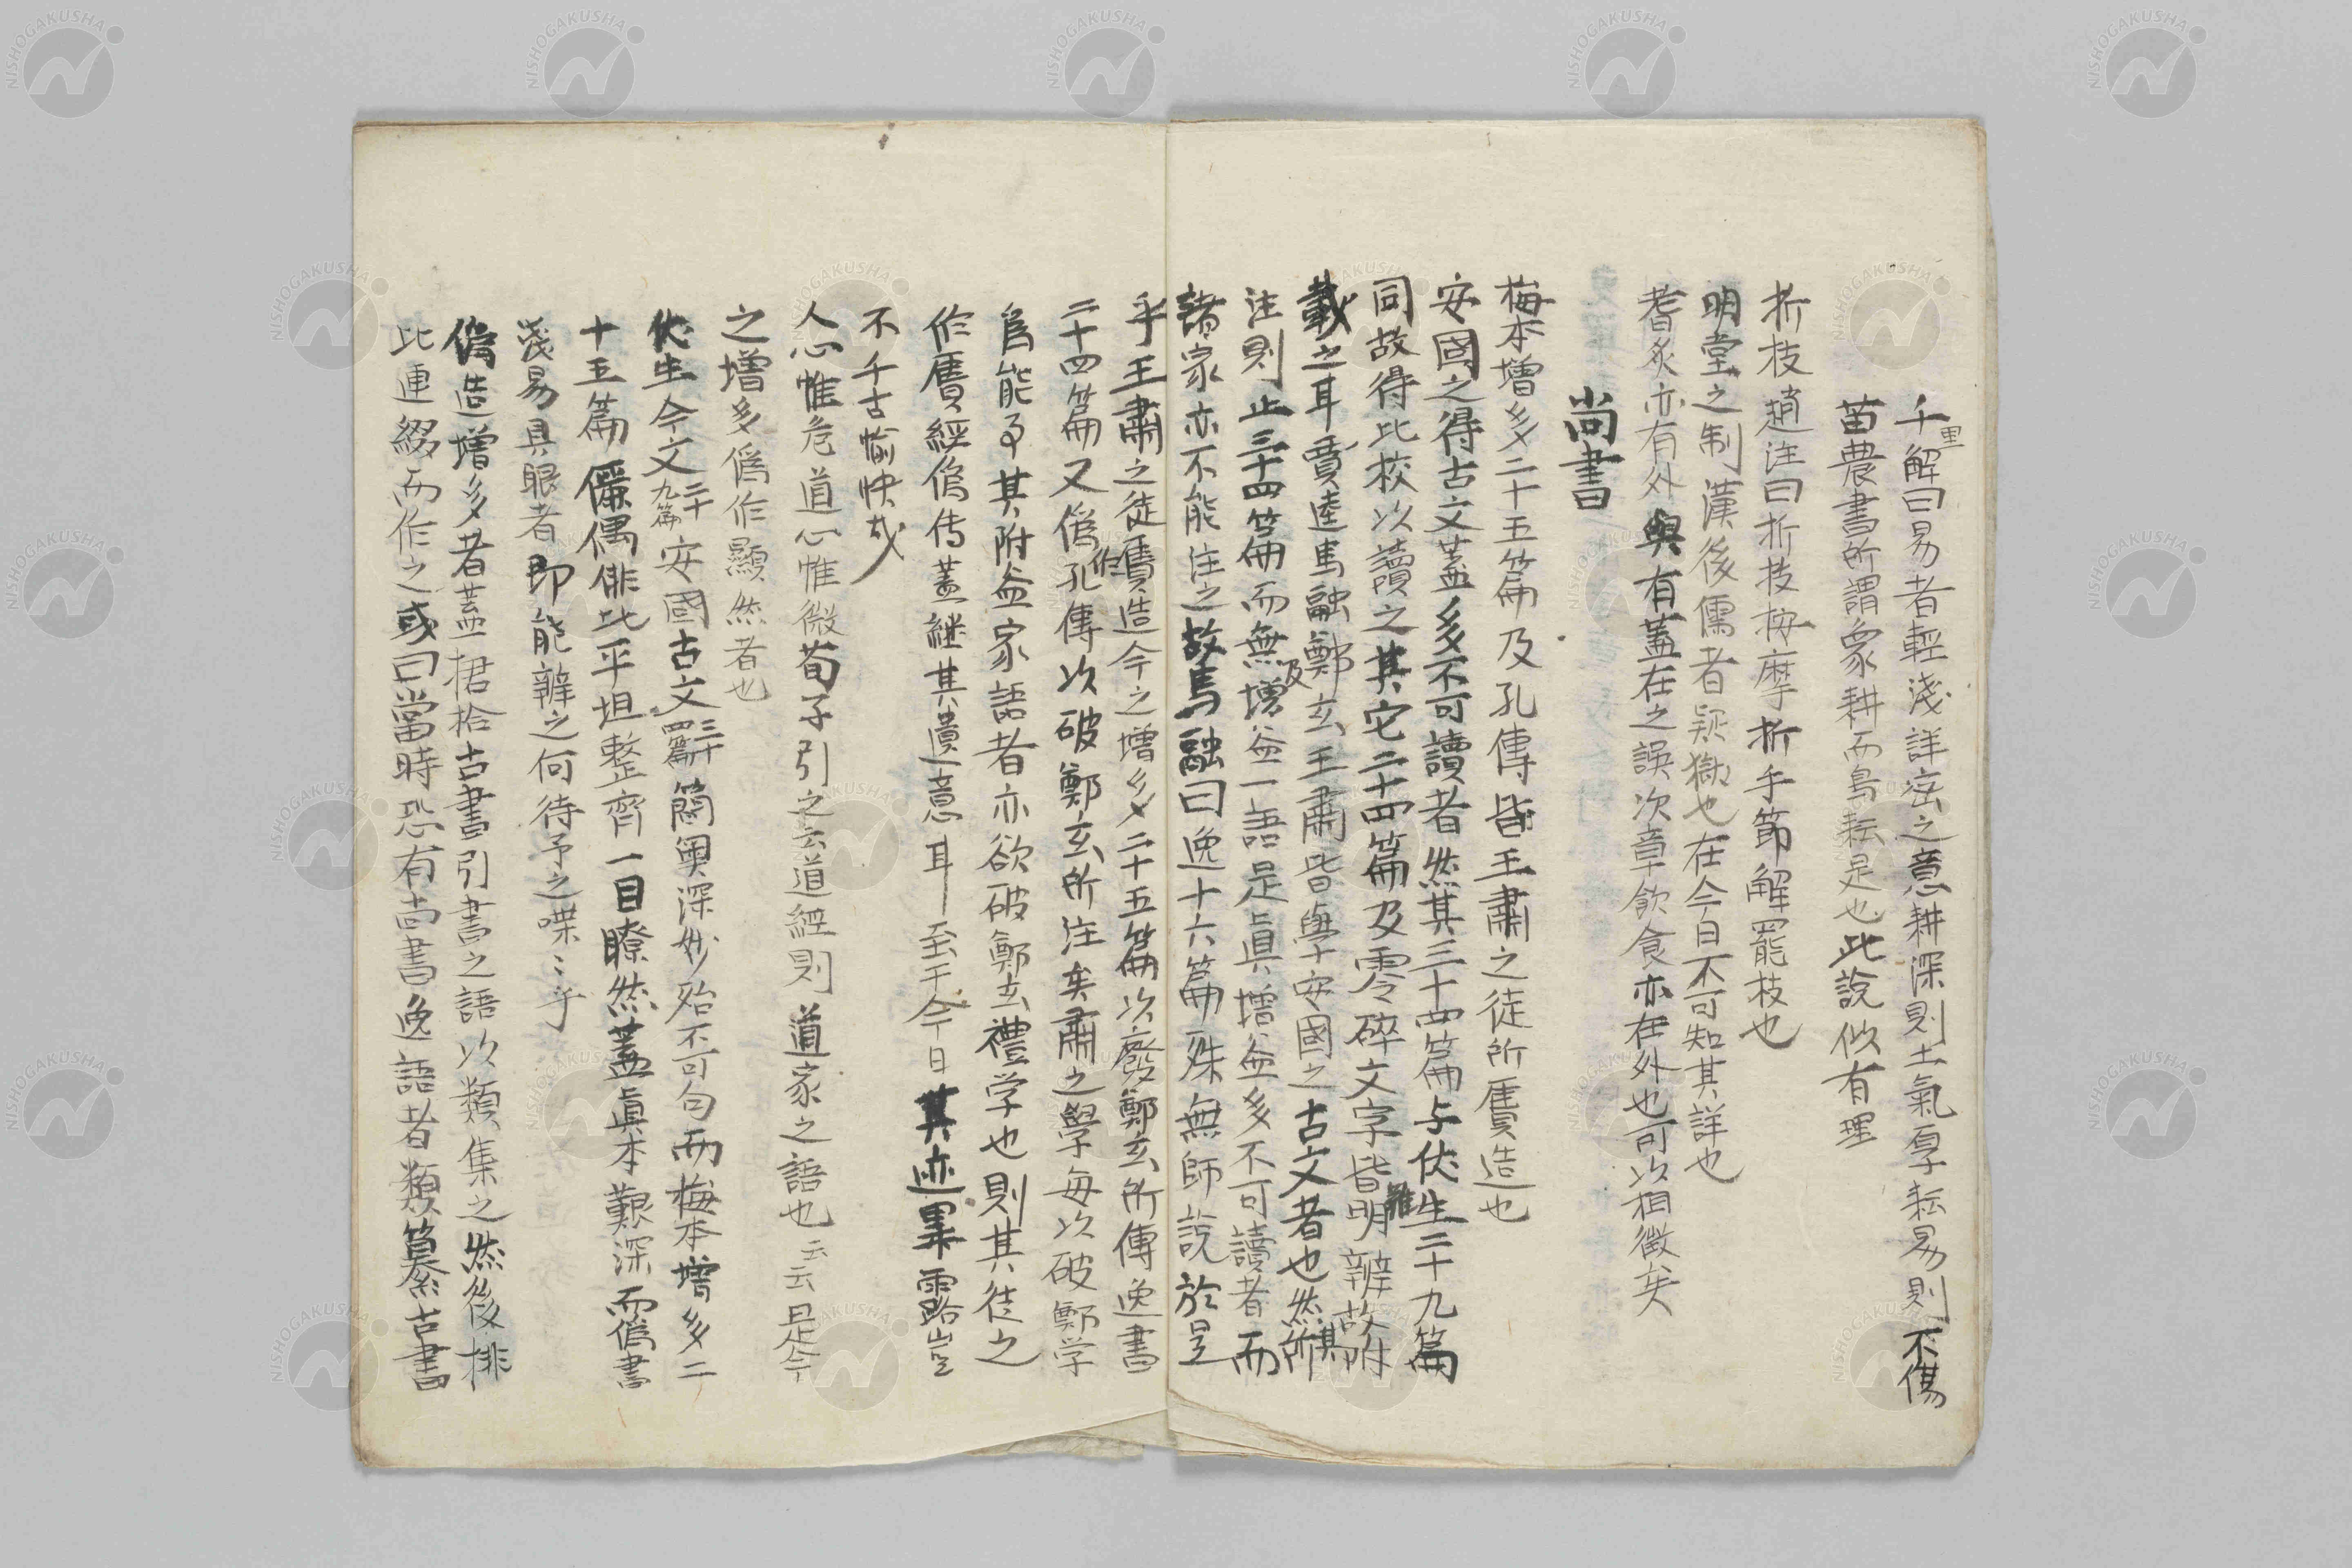 千里解曰易者輕淺詳密之意耕深則土氣厚耘易則不傷
苗農書所謂象耕而鳥耘是也此說似有理
折枝趙注曰折技按摩折手節解罷枝也
明堂之制漢後儒者疑獄也在今日不可知其詳也
耆炙亦有外與有蓋在之誤次章飲食亦在外也可以相徵矣
尚書
梅本增多二十五篇及孔傳皆王肅之徒所贋造也
安國之得古文蓋多不可讀者然其三十四篇与伏生二十九篇
同故得比校以讀之其它二十四篇及零碎文字皆難明辨故附
載之耳賈逵馬融鄭玄王肅皆學安國之古文者也然其所
注則止三十四篇而無增及益一語是眞增益多不可讀者而
諸家亦不能注之故馬融曰逸十六篇殊無師說於是
乎王肅之徒贋造今之增多二十五篇以廢鄭玄所傳逸書
二十四篇又偽作孔傳以破鄭玄所注矣肅之學每以破鄭学
爲能事其附益家語者亦欲破鄭玄禮学也則其徒之
作贋經偽传蓋継其遺意耳至于今日其迹畢露豈
不千古愉快哉
人心惟危道心惟微荀子引之云道經則道家之語也云云是今
之增多偽作顯然者也
伏生今文二十九篇安國古文三十四篇簡奧深妙殆不可句而梅本增多二
十五篇儷偶俳比平坦整齊一目瞭然蓋眞本艱深而偽書
淺易具眼者即能辨之何待予之喋〻乎
偽造增多者蓋捃拾古書引書之語以類集之然後排
比連綴而作之或曰當時恐有尚書逸語者類纂古書
NISHOGAKUSHA